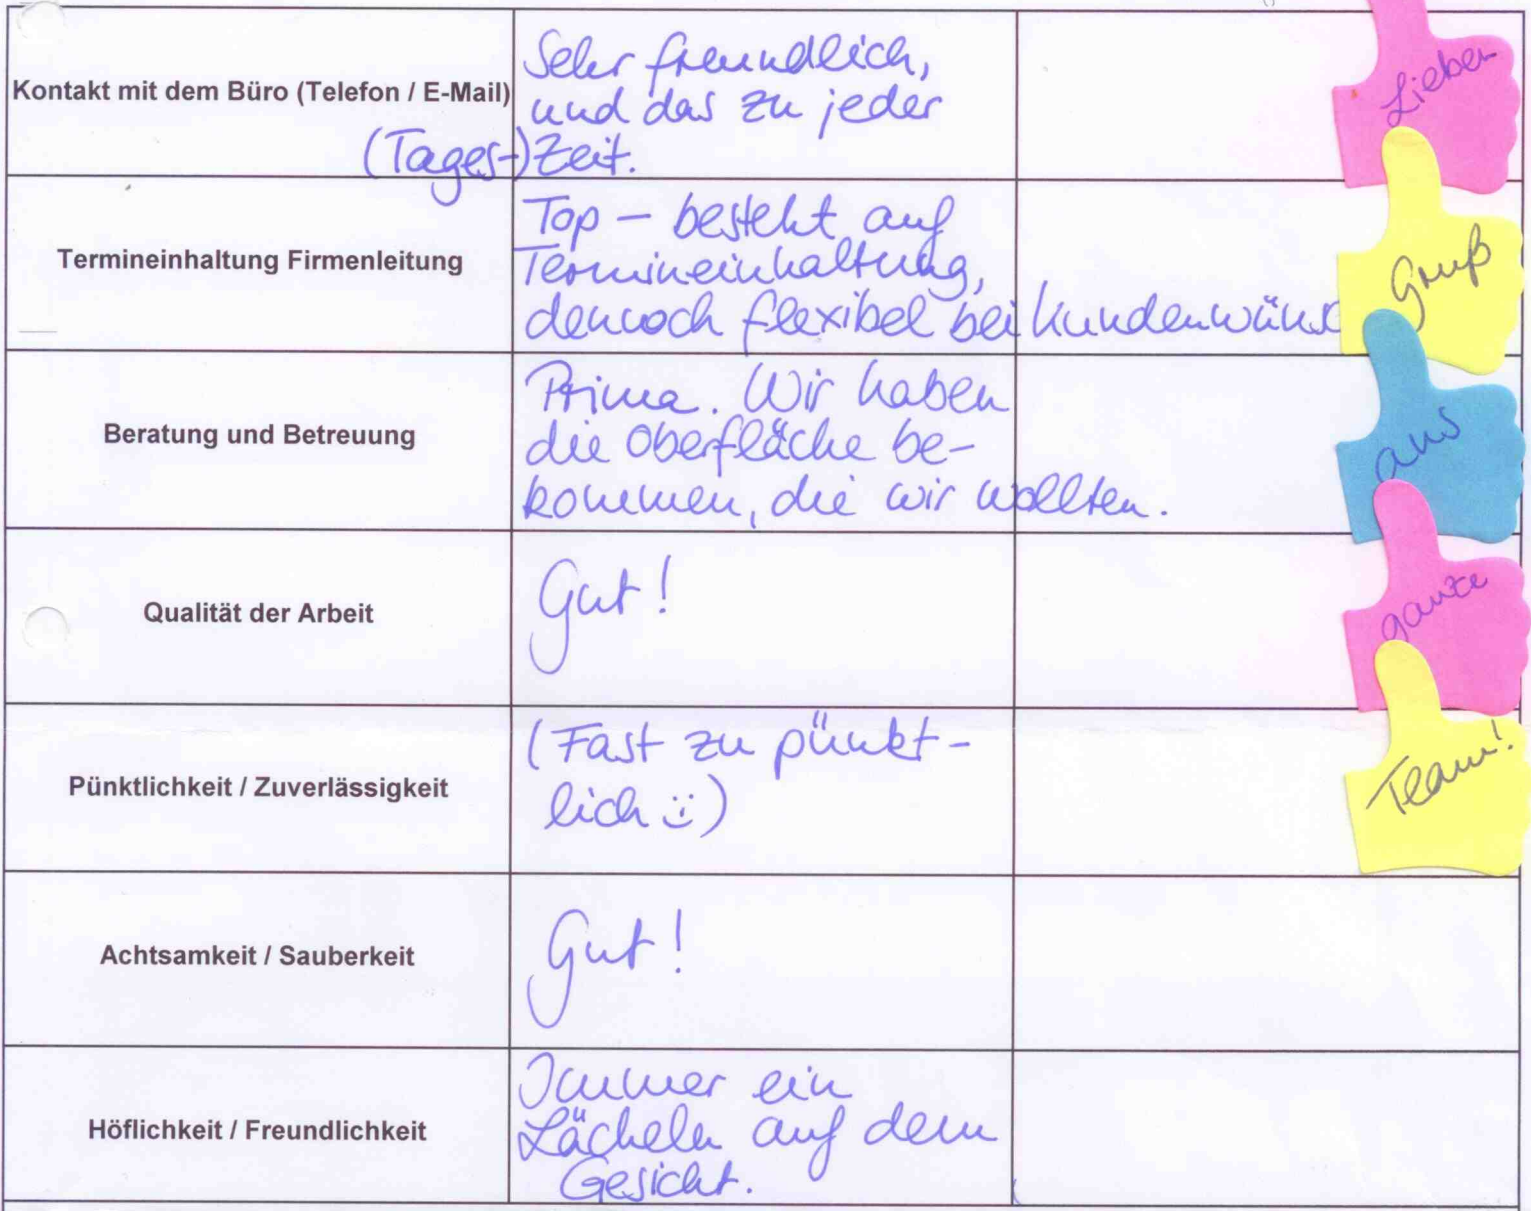 Kontakt mit dem Büro (Telefon / E-Mail)
Sehr freundlich,
und das zu jeder
(Tages-)Zeit.
Termineinhaltung Firmenleitung
Top – besteht auf
Termineinhaltung,
dennoch flexibel bei Kundenwüns
Beratung und Betreuung
Prima. Wir haben
die Oberfläche be-
kommen, die wir wollten.
Qualität der Arbeit
Gut!
Pünktlichkeit / Zuverlässigkeit
(Fast zu pünkt-
lich :))
Achtsamkeit / Sauberkeit
Gut!
Höflichkeit / Freundlichkeit
Immer ein
Lächeln auf dem
Gesicht.
Lieben
Gruß
ans
ganze
Team!